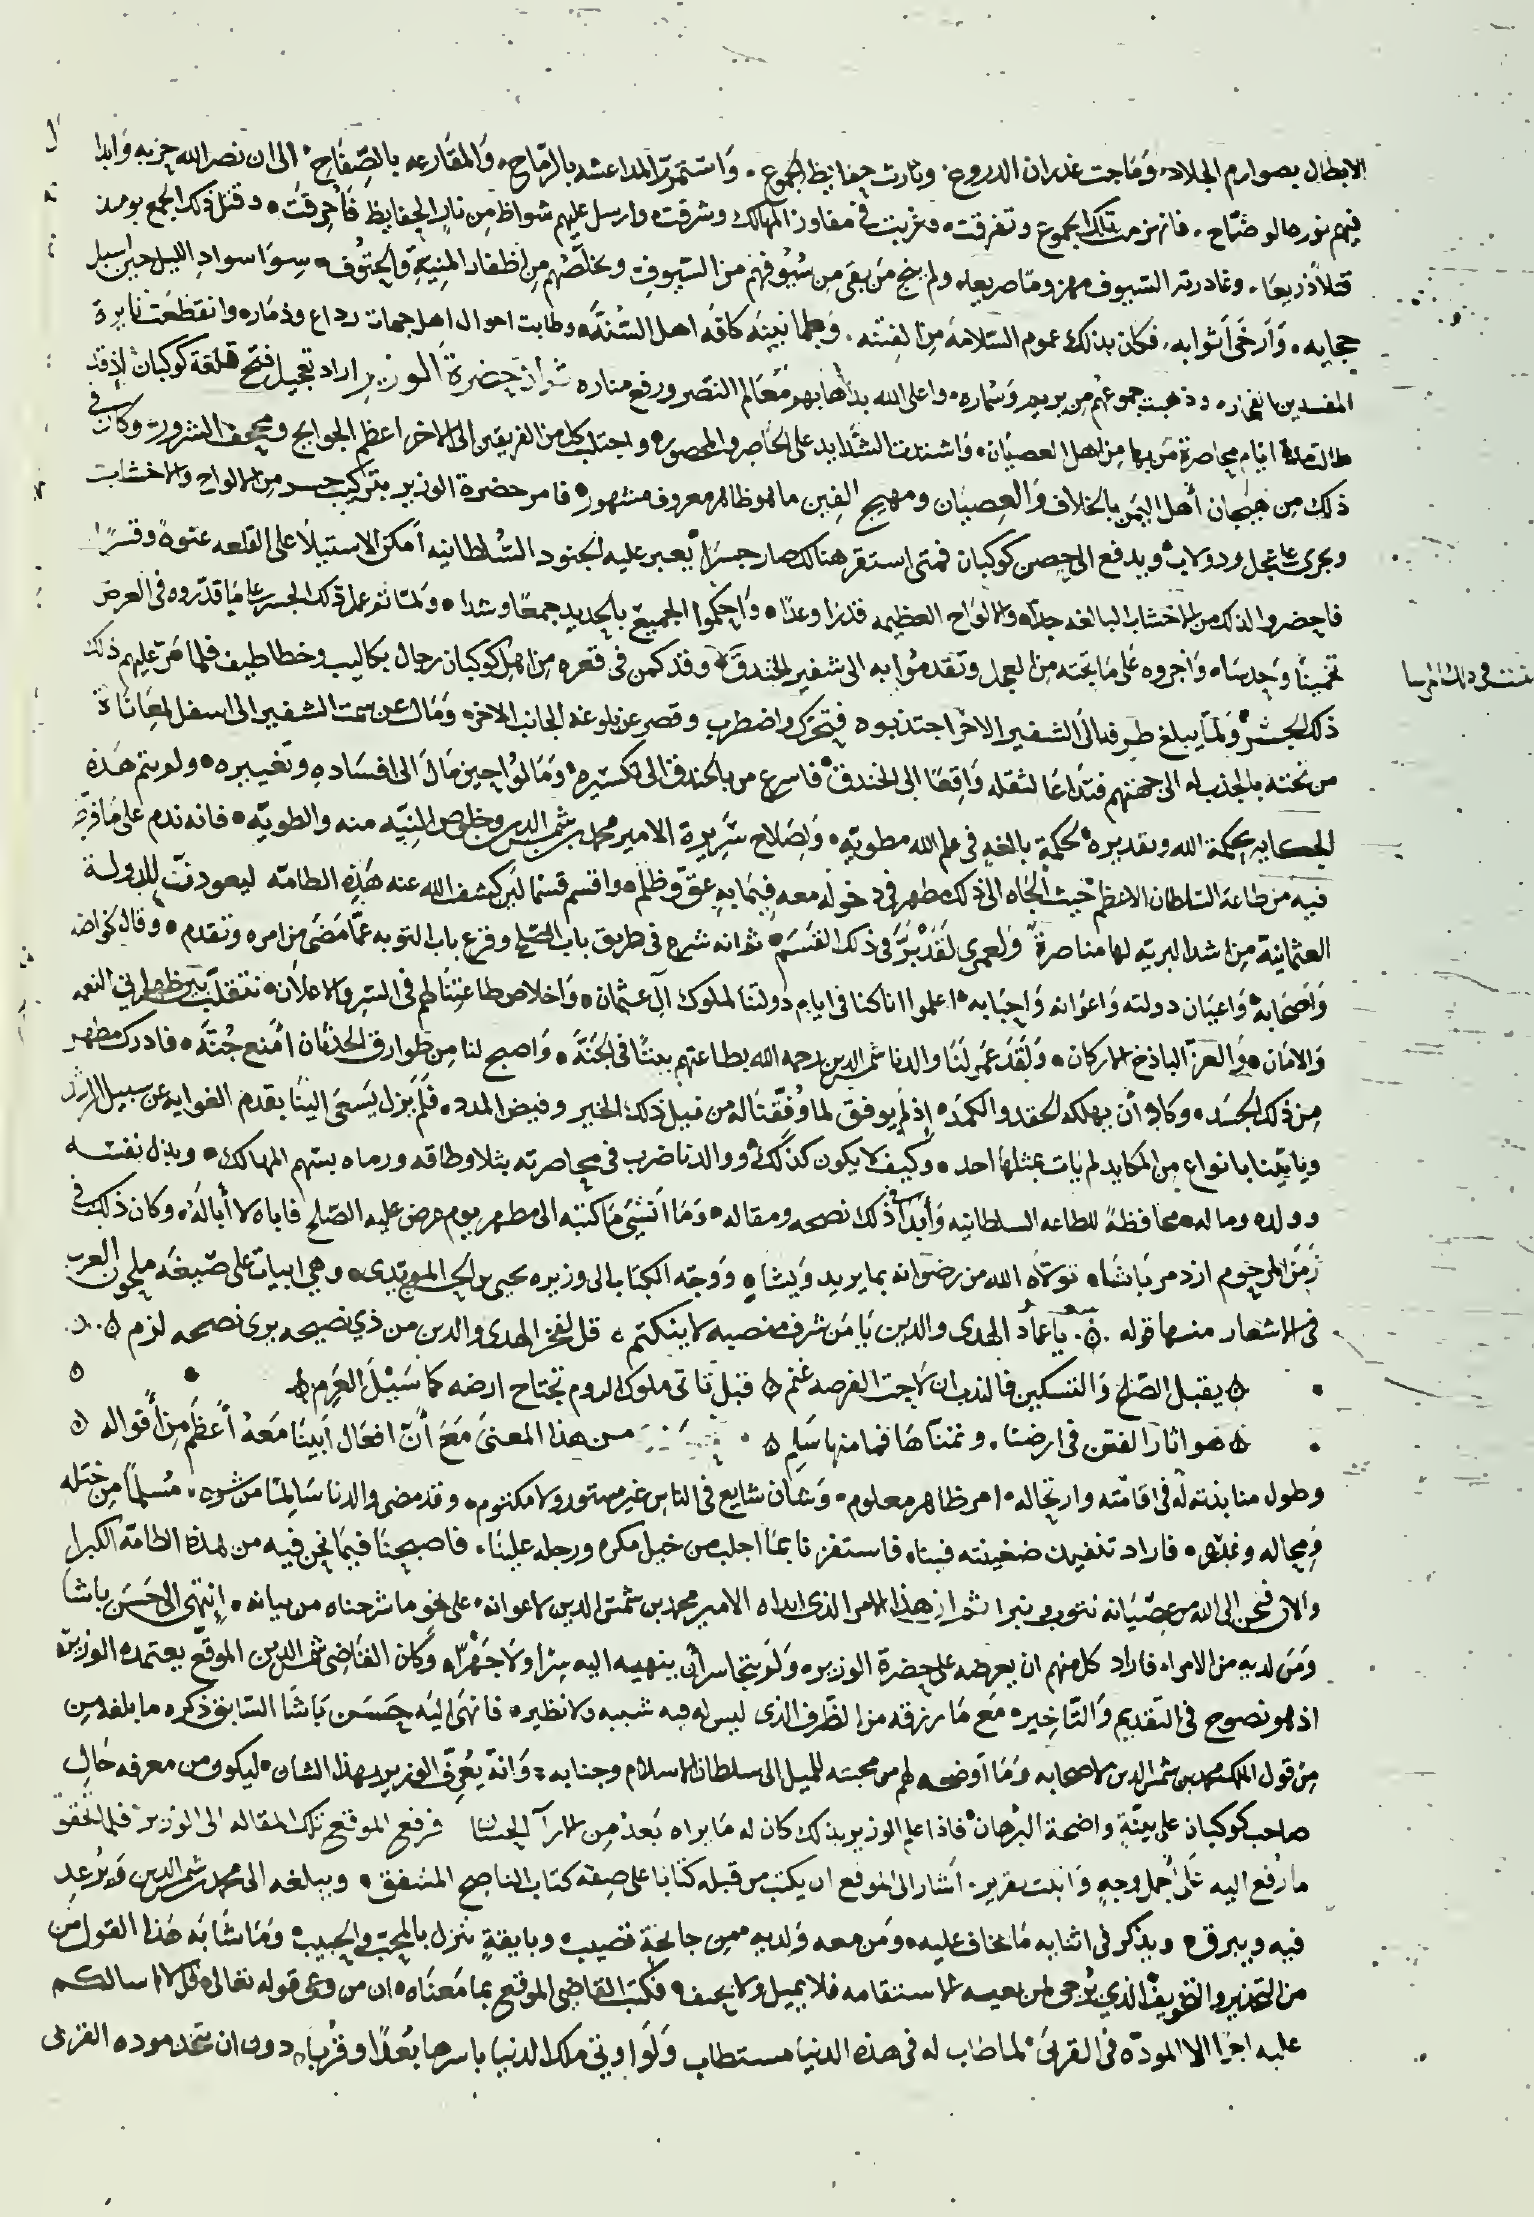 الابطال بصوارم الجلاد وَمَاجت غدران الدروع وثارت حفايظ الجموع وَاستمرّت المداعسه بالرّماح وَالمقارعه بالصِّفاح الى ان نصر الله حزبه وَابدا
فيهم نوره الوضّاح فانهزمت تلك الجموع وتفرقت وغربت في مفاوز المهالك وشرقت وارسل عليهم شواظ مِن نار الحفايظ فاحرقت وقتل ذلك الجمع يوميذ
قتلاً ذريعًا وغادرته السّيوف مهزومًا صريعا ولم ينج مَن بقى من سُيُوفهم من السّيوف ويخلّصهم مِن اظفار المنيةِ والحتُوف سِوَا سواد الليل حين اسبل
حجابه وَارخَى اَثوابه فكان بذلك عموم السّلامَهُ مِن الفِتنه كافه اهل السُّنّه وطابت احوال اهل جهات رداع وذماره وانقطعت نايرة
المفسدين وذهبت جموعُهم مِن وسماره واعلى الله بذهابهم مَعَالم النصر ورفع مناره ثم ان حضرة الوزير اراد تعجيل فتح قلعة كوكبان اِذ قد
طالت مدة ايّام محاصرة مَن بها مِن اهل العصيان وَاشتدت الشّدايد على الحَاصر والمحصور واجتلب كل من الفريقين الى الاخر اعظم الجوايح الشرور وكان في
ذلك من هيجان أهل اليَمن بالخلاف وَالعِصيَان ومهيج الفِتن ما هو ظاهر معروف مشهور فامر حضرة الوزير بتركيب جسر مِن الالواح والاخشاب
ويجرى على عجل ودولاب ويدفع الى حِصن كوكبان فمتى استقر هنالك صار جسرًا يعبر عليه الجنود السُّلطانيه اَمكن الاستيلاَ على القلعه عنوهً وقسرًا
فاحضروا لذلك من الاخشاب البالغه جلاً والالوَاح العظيمه قدرًا وعدًا وَاحكموا الجميعَ بالحديد جمعًا وشدا وَلمّا تم عمل ذلك الجسر على مَا قدّروه في العرض
تخمينًا وَحدسًا وَاجروه عَلى مَا تحته مِن العجل وتقدمُوا به الى شفير الخندق وقد كمن في قعره مِن اهل كوكبان رجال بكاليب وخطاطيف فلما مَرّ عليهم ذلك
ذلك الجسر وَلمّا يبلغ طرفه الى الشفير الاخر اجتذبوه فتحرّك واضطرب وقصر عن بلوغه الجانب الاخر وَمَال عن سمت الشفير الى اسفل لمعَانَاة
من تحته بالجذب له الى جهتهم فتدَاعَا لثقله وَاقِعًا الى الخندق فاسرع من بالخندق الى تكسيره وَمَالُوا حين مَال الى افسَاده وتغييره ولم يتم هَذه
الحكايه بحكمة الله وتقديره لحكمةٍ بالغهٍ في علم الله مطويه وَاِصلاح سَّرِيرة الامير محمد بن شمس الدين وخلوص النِّيّه منه والطويّه فانه ندم على مَا فرّط
فيه من طاعة السّلطان الاعظم حيث الجاه الى ذلك مطهر في دخوله معه فِيمَا به عقَّ وظلم واقسم قسَمًا لئن كشف الله عنه هَذه الطامّه ليعودنّ للدولة
العثمانيّة مِن اشد البريّه لها مناصرة وَلعمري لَقَدْ بَرَّ في ذلك القسَمِ ثم انه شرع في طريق باب الصّلح وقرع باب التوبه عمَّا مَضَى مِن امره وتقدم وقال لخواصه
وَاَصحَابه وَاعيَان دولته وَاعوَانه وَاحبَابه اعلموا انا كنا في ايام دولتنَا لملوك آل عثمان وَاخلاص طاعتِنَا لهم في السّر والاعلان نتقلب بين ظهراني النعمه
وَالامَان وَالعزّ الباذخ الاركان وَلقَدَ عَمَر لَنَا والدنا شمس الدين رحمه الله بطاعتهم بيتًا في الجَنّة وَاصبح لنا مِن طوارق الحدثان أمنع جُنّة فادرك مطهر
مِن ذلك الحَسَد وكاد أن يهلكه الحقد والكمد إذ لم يوفق لما وُفِّقنا له من نيل ذلك الخير وفيض المدد فلم يزل يَسعَى الينَا بقدم الغوايه عن سبيل الرشد
وياتينا بانواع مِن المكايد لم يات بمثلها احد وكيف لا يكون كذلك ووالدنا ضرب في محاصرته بثلا وطاقه ورماه بسَهم المهالك وبذل نفسه
وولده وماله محافظةً للطاعه السلطانيه وَأبدَا في ذلك نصحه ومقاله وَمَا اَنسَى مَا كتبه الى مطهر يوم عرض عليه الصّلح فاباه لا أبالَهُ وكان ذلك في
زَمَن المرحوم ازدمر باشا تولّاه الله من رضوانه بما يريد وَيشا وَوجّه الكتاب الى وزيره يحيى بن وهي ابيات على صِيغَه ملحون العرب
في الاشعار منها قوله يا عمادُ الهدى والدين يَا مَن شرف منصبه لا ينكتم قل لفخر الهدى والدين من ذي نصيحه يرى نصحه لزم
يقبل الصّلح وَالتسكين فالندب ان لاحت الفرصه غنم قبل تاتى ملوك الروم تجتاح ارضه كما سَيْلَ العَرِم
هو اثار الفتن في ارضنا وتمنّاهَا فما منها سَلِم من هذا المعنىَ مَعَ أَنّ افعَال اَبينَا مَعَهُ أعظم مِن أَقواله
وطول منابذته لهُ في اقامته وارتحاله امر ظاهر معلوم وَشان شايع في الناس غير مستور ولا مكتوم وقد مضى والدنا سَالمًا من شره مُسلمًا مِن ختله
وَمِحاله وغدره فاراد تنفيذ ضغينته فينا فاستفزنا بمَا اجلب من خيل مكره ورجله علينا فاصبحنَا فيمَا نحن فيه من هذه الطامّه الكبرا
والان فنحن الى الله من عِصيَانه نتوب ونبرا ثم ان هذا الامر الذى ابداه الامير محمد بن شمس الدين لاعوانه على نحو ما شرحناه من بيانه اِنتهَى الى حَسَن باشا
وَمَن لديه من الامراء فاراد كل منهم ان يعرضه على حضرة الوزير وَلم يتجاسر أن ينهيه اليه سِرا ولا جَهْرًا وكان القَاضِى شمس الدين الموقّع يعتمده الوزير
اذ هو نصوح في التقديم وَالتّاخير مَع مَا رزقه من الظّرف الذى ليس له فيه شبيه ولا نظير فانهَى اليَه حَسَن بَاشَا السّابق ذكره ما بلغه مِن
مِن قول الملك محمد بن شمس الدين لاصحابه وَمَا اَوضحه لهم من محبته للميل الى سلطان الاسلام وجنابه وَانهُ يُعَرِّف الوزير بهذا الشان ليكون من معرفه حَال
صاحب كوكبان على بيّنةٍ واضحة البُرهان فاذا علم الوزير بذلك كان له مَا يراه بَعدُ مِن الارآ الحِسَان فرفع الموقّع تلك المقاله الى الوزير فلما تحقق
مارُفع اليه عَلَى أَجمل وجهٍ وَاثبت تقرير اَشار الى الموقع ان يكتب من قبله كتابا على صِفة كتاب الناصح المشفق ويبلغه الى محمد بن شمس الدين وَيُرْعِد
فيه ويبرق ويذكر في اثنايه مَا يخاف عليه وَمَن معه وَلديه مِن جايحَةٍ تصيب وبايقةٍ تنزل بالمحبّ والحبيب وَمَا شَابَه هَذا القول مِن
مِن التحذير والتخويف الذي يُرجى لمن يعيه الاستقامه فلا يميل ولا يحيف فكتب القاضِي الموقع بما مَعنَاه ان من وعى قوله تعالى قل لا اسالكم
عليه اجرًا الا المودّة في القربىَ لما طاب له في هذه الدنيا مستطاب وَلَو اوتى ملك الدنيا باسرها بُعدًا وقُربا دون ان تتخذ موده القربى